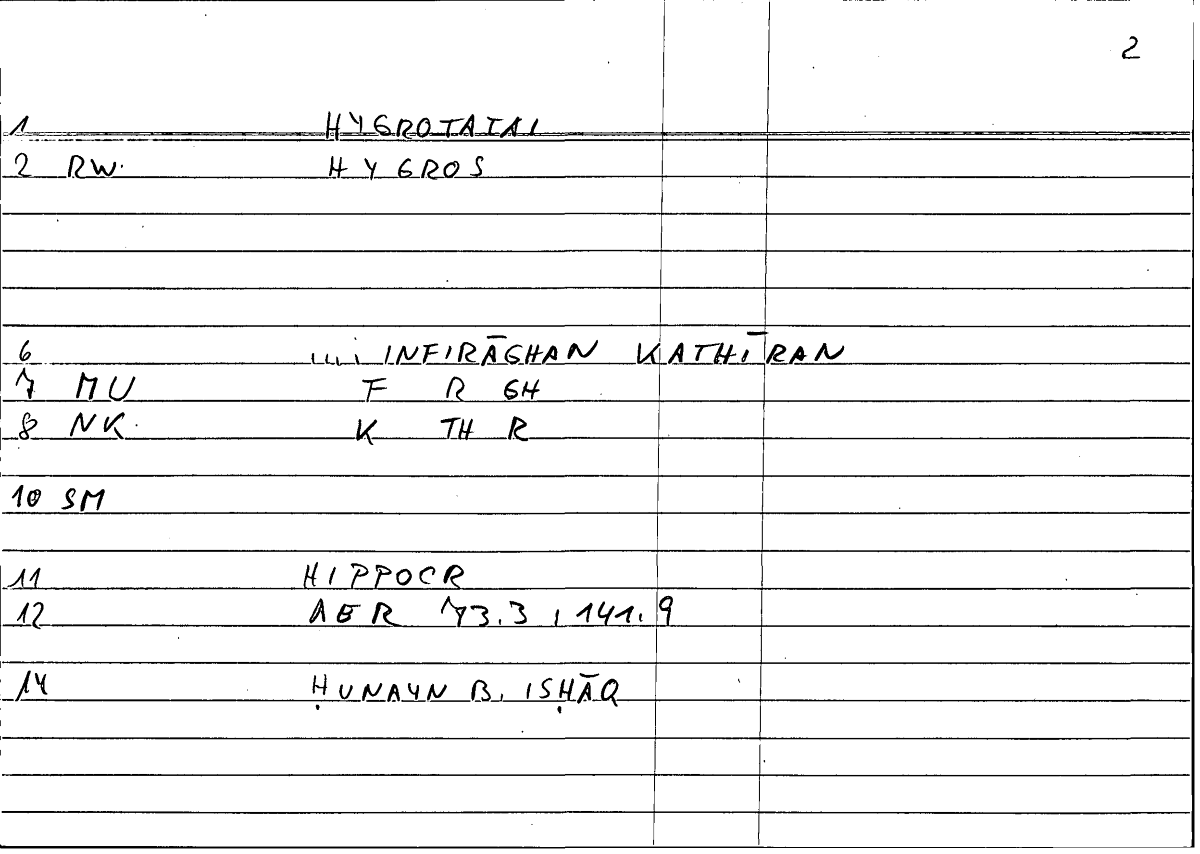 2
1 HYGROTATAI
2 RW. HYGROS
6 .... INFIRĀGHAN KATHĪRAN
7 MU F R GH
8 NK. K TH R
10 SM
11 HIPPOCR
12 AER 73.3 , 141.9
14 ḤUNAYN B. ISḤĀQ